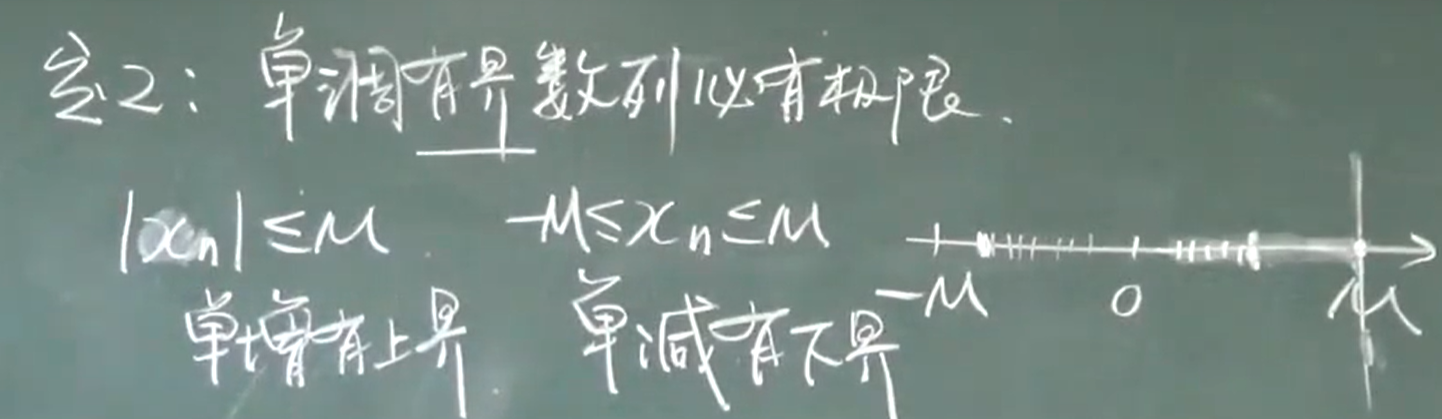 定2：单调有界数列必有极限.
|xₙ|≤M -M≤xₙ≤M
-M 0 M
单增有上界 单减有下界